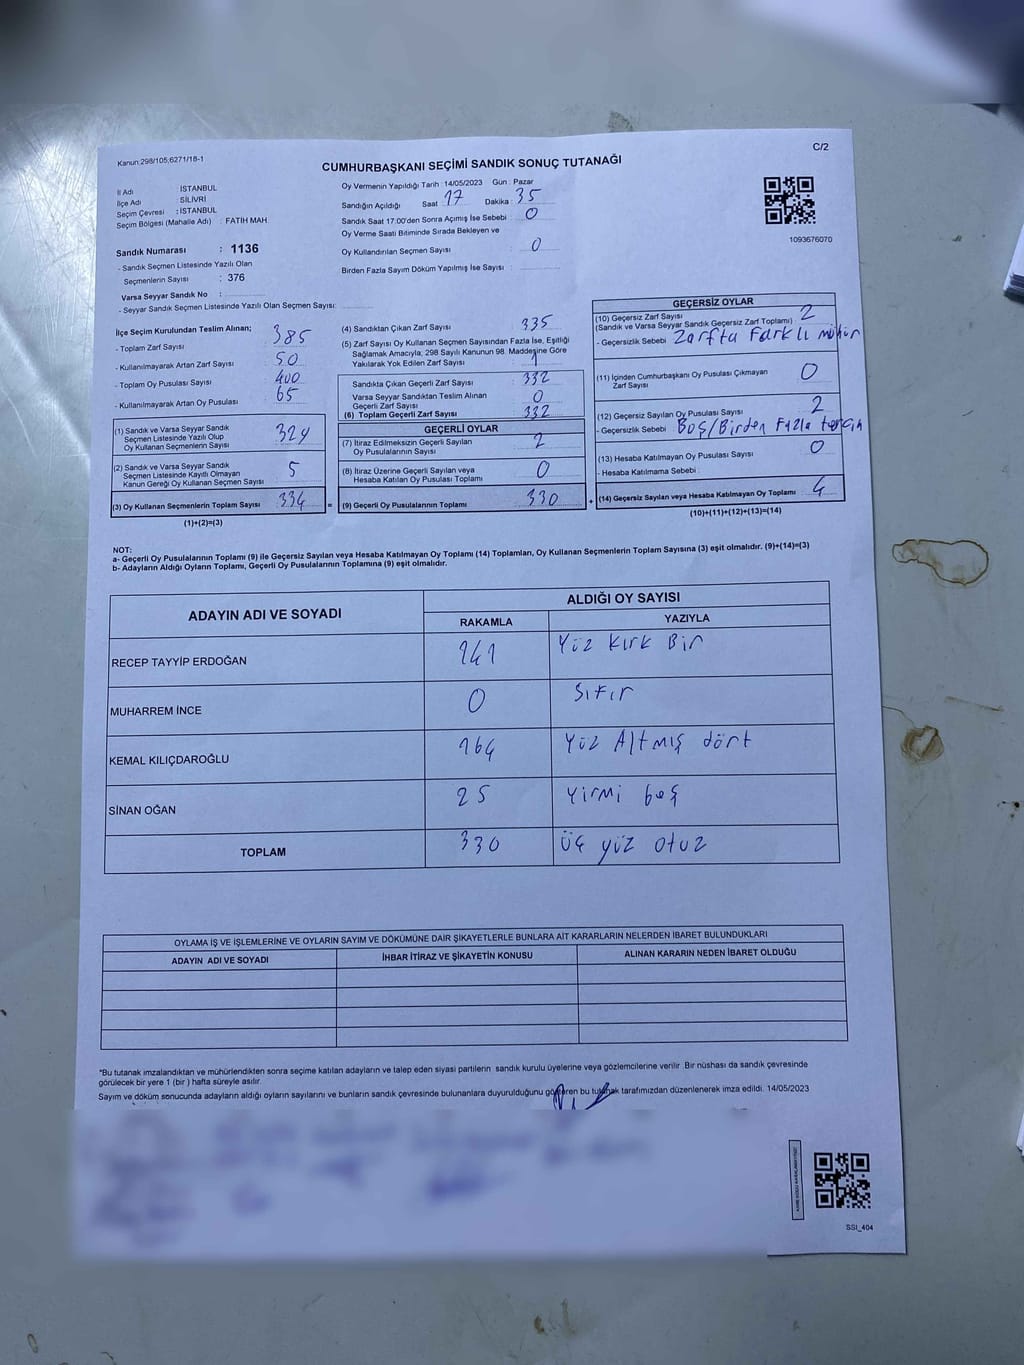 C/2
Kanun:298/105;6271/18-1
CUMHURBAŞKANI SEÇİMİ SANDIK SONUÇ TUTANAĞI
İl Adı : İSTANBUL
İlçe Adı : SİLİVRİ
Seçim Çevresi : İSTANBUL
Seçim Bölgesi (Mahalle Adı) : FATİH MAH
Sandık Numarası : 1136
- Sandık Seçmen Listesinde Yazılı Olan
Seçmenlerin Sayısı : 376
Varsa Seyyar Sandık No :
- Seyyar Sandık Seçmen Listesinde Yazılı Olan Seçmen Sayısı:
Oy Vermenin Yapıldığı Tarih : 14/05/2023 Gün : Pazar
Sandığın Açıldığı Saat : 17 Dakika : 35
Sandık Saat 17.00'den Sonra Açımış İse Sebebi : 0
Oy Verme Saati Bitiminde Sırada Bekleyen ve
Oy Kullandırılan Seçmen Sayısı : 0
Birden Fazla Sayım Döküm Yapılmış İse Sayısı :
1093676070
İlçe Seçim Kurulundan Teslim Alınan;
- Toplam Zarf Sayısı 385
- Kullanılmayarak Artan Zarf Sayısı 50
- Toplam Oy Pusulası Sayısı 400
- Kullanılmayarak Artan Oy Pusulası 65
(1) Sandık ve Varsa Seyyar Sandık
Seçmen Listesinde Yazılı Olup
Oy Kullanan Seçmenlerin Sayısı 329
(2) Sandık ve Varsa Seyyar Sandık
Seçmen Listesinde Kayıtlı Olmayan
Kanun Gereği Oy Kullanan Seçmen Sayısı 5
(3) Oy Kullanan Seçmenlerin Toplam Sayısı 334
(1)+(2)=(3)
=
(4) Sandıktan Çıkan Zarf Sayısı 335
(5) Zarf Sayısı Oy Kullanan Seçmen Sayısından Fazla İse, Eşitliği
Sağlamak Amacıyla, 298 Sayılı Kanunun 98. Maddesine Göre
Yakılarak Yok Edilen Zarf Sayısı 1
Sandıkta Çıkan Geçerli Zarf Sayısı 332
Varsa Seyyar Sandıktan Teslim Alınan
Geçerli Zarf Sayısı 0
(6) Toplam Geçerli Zarf Sayısı 332
GEÇERLİ OYLAR
(7) İtiraz Edilmeksizin Geçerli Sayılan
Oy Pusulalarının Sayısı 2
(8) İtiraz Üzerine Geçerli Sayılan veya
Hesaba Katılan Oy Pusulası Toplamı 0
(9) Geçerli Oy Pusulalarının Toplamı 330
+
GEÇERSİZ OYLAR
(10) Geçersiz Zarf Sayısı 2
(Sandık ve Varsa Seyyar Sandık Geçersiz Zarf Toplamı)
- Geçersizlik Sebebi Zarfta Farklı mühür
(11) İçinden Cumhurbaşkanı Oy Pusulası Çıkmayan
Zarf Sayısı 0
(12) Geçersiz Sayılan Oy Pusulası Sayısı 2
- Geçersizlik Sebebi Boş/Birden Fazla tercih
(13) Hesaba Katılmayan Oy Pusulası Sayısı 0
- Hesaba Katılmama Sebebi
(14) Geçersiz Sayılan veya Hesaba Katılmayan Oy Toplamı 4
(10)+(11)+(12)+(13)=(14)
NOT:
a- Geçerli Oy Pusulalarının Toplamı (9) ile Geçersiz Sayılan veya Hesaba Katılmayan Oy Toplamı (14) Toplamları, Oy Kullanan Seçmenlerin Toplam Sayısına (3) eşit olmalıdır. (9)+(14)=(3)
b- Adayların Aldığı Oyların Toplamı, Geçerli Oy Pusulalarının Toplamına (9) eşit olmalıdır.
ADAYIN ADI VE SOYADI ALDIĞI OY SAYISI
RAKAMLA YAZIYLA
RECEP TAYYİP ERDOĞAN 141 Yüz Kırk Bir
MUHARREM İNCE 0 Sıfır
KEMAL KILIÇDAROĞLU 164 Yüz Altmış dört
SİNAN OĞAN 25 Yirmi beş
TOPLAM 330 Üç yüz otuz
OYLAMA İŞ VE İŞLEMLERİNE VE OYLARIN SAYIM VE DÖKÜMÜNE DAİR ŞİKAYETLERLE BUNLARA AİT KARARLARIN NELERDEN İBARET BULUNDUKLARI
ADAYIN ADI VE SOYADI İHBAR İTİRAZ VE ŞİKAYETİN KONUSU ALINAN KARARIN NEDEN İBARET OLDUĞU
*Bu tutanak imzalandıktan ve mühürlendikten sonra seçime katılan adayların ve talep eden siyasi partilerin sandık kurulu üyelerine veya gözlemcilerine verilir. Bir nüshası da sandık çevresinde
görülecek bir yere 1 (bir ) hafta süreyle asılır.
Sayım ve döküm sonucunda adayların aldığı oyların sayılarını ve bunların sandık çevresinde bulunanlara duyurulduğunu gösteren bu tutanak tarafımızdan düzenlenerek imza edildi. 14/05/2023
SSI_404